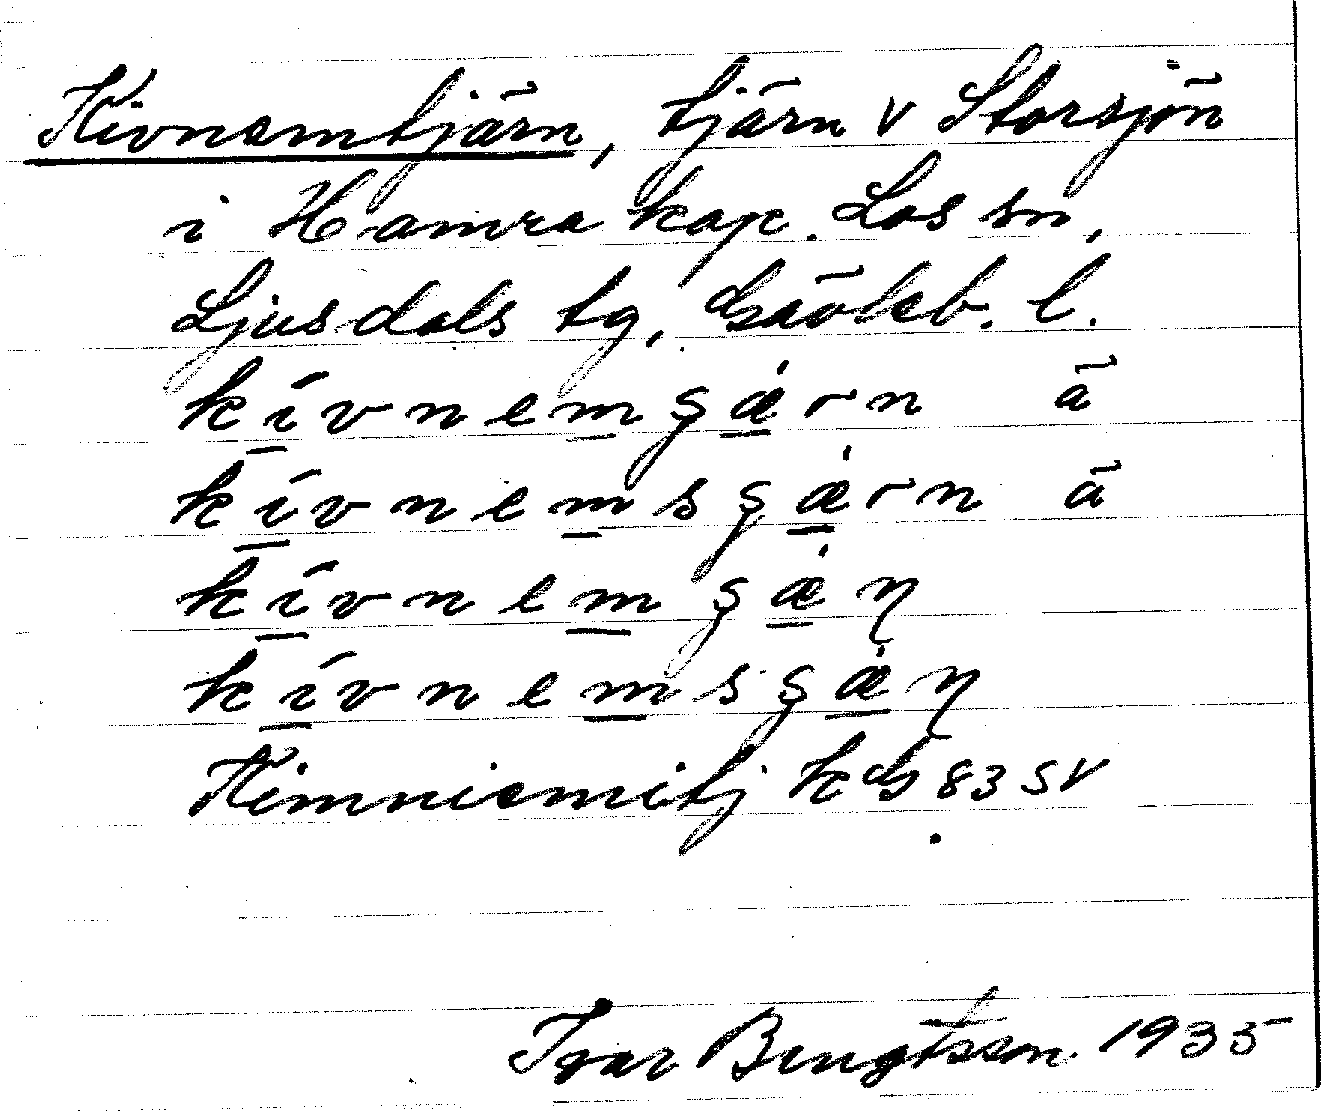 Kivnemtjärn, tjärn v Storsjön
i Hamra kap. Los sn,
Ljusdals tg, Gävleb. l.
kívnemşǽrn ä
kívnemsşǽrn ä
kívnemşǽη
kívnemsşǽη
Kimniemitj kbl 83 SV
Ivar Bengtsson 1935